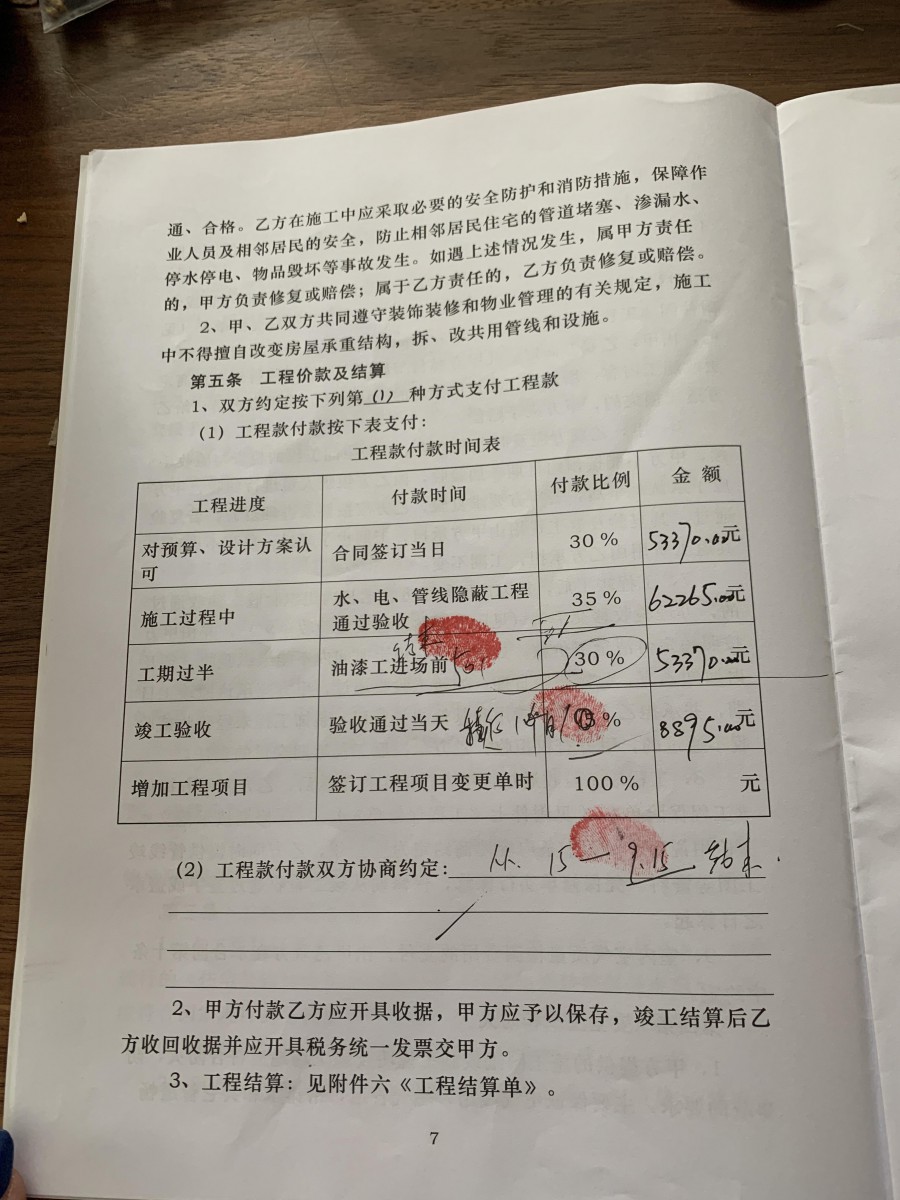 通、合格。乙方在施工中应采取必要的安全防护和消防措施，保障作
业人员及相邻居民的安全，防止相邻居民住宅的管道堵塞、渗漏水、
停水停电、物品毁坏等事故发生。如遇上述情况发生，属甲方责任
的，甲方负责修复或赔偿；属于乙方责任的，乙方负责修复或赔偿。
2、甲、乙双方共同遵守装饰装修和物业管理的有关规定，施工
中不得擅自改变房屋承重结构，拆、改共用管线和设施。
第五条 工程价款及结算
1、双方约定按下列第(1)种方式支付工程款
(1) 工程款付款按下表支付：
工程款付款时间表
工程进度 付款时间 付款比例 金 额
对预算、设计方案认可 合同签订当日 30 % 53370.00元
施工过程中 水、电、管线隐蔽工程通过验收 35 % 62265.00元
结束
工期过半 油漆工进场前 30 % 53370.00元
竣工验收 验收通过当天 % 8895.00元
增加工程项目 签订工程项目变更单时 100 % 元
(2) 工程款付款双方协商约定： 15 — 9.15 结束.
2、甲方付款乙方应开具收据，甲方应予以保存，竣工结算后乙
方收回收据并应开具税务统一发票交甲方。
3、工程结算：见附件六《工程结算单》。
7